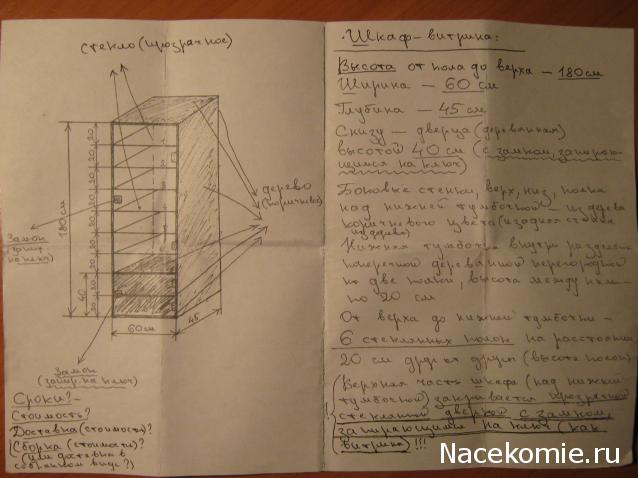 стекло (прозрачное)
180см
20
20
20
20
20
20
20
40
20
20
60см
45
дерево
(коричнев.)
Замок
(запир.
на ключ)
Замок
(запир. на ключ)
Сроки?
Стоимость?
Доставка (стоимость)?
Сборка (стоимость)?
(или доставка в
собранном виде?)
Шкаф-витрина:
Высота от пола до верха – 180см
Ширина – 60 см
Глубина – 45 см
Снизу – дверца (деревянная)
высотой 40 см (с замком, запираю-
щимся на ключ)
Боковые стенки, верх, низ, полка
над нижней тумбочкой – из дерева
коричневого цвета (и задняя стенка
из дерева)
Нижняя тумбочка внутри разделена
поперечной деревянной перегородкой
на две полки, высота между ними –
по 20 см
От верха до нижней тумбочки –
6 стеклянных полок на расстоянии
20 см друг от друга (высота полок)
(Верхняя часть шкафа (над нижней
тумбочкой) закрывается прозрачной
стеклянной дверкой с замком,
запирающимся на ключ (как
витрина) !!!
Nacekomie.ru